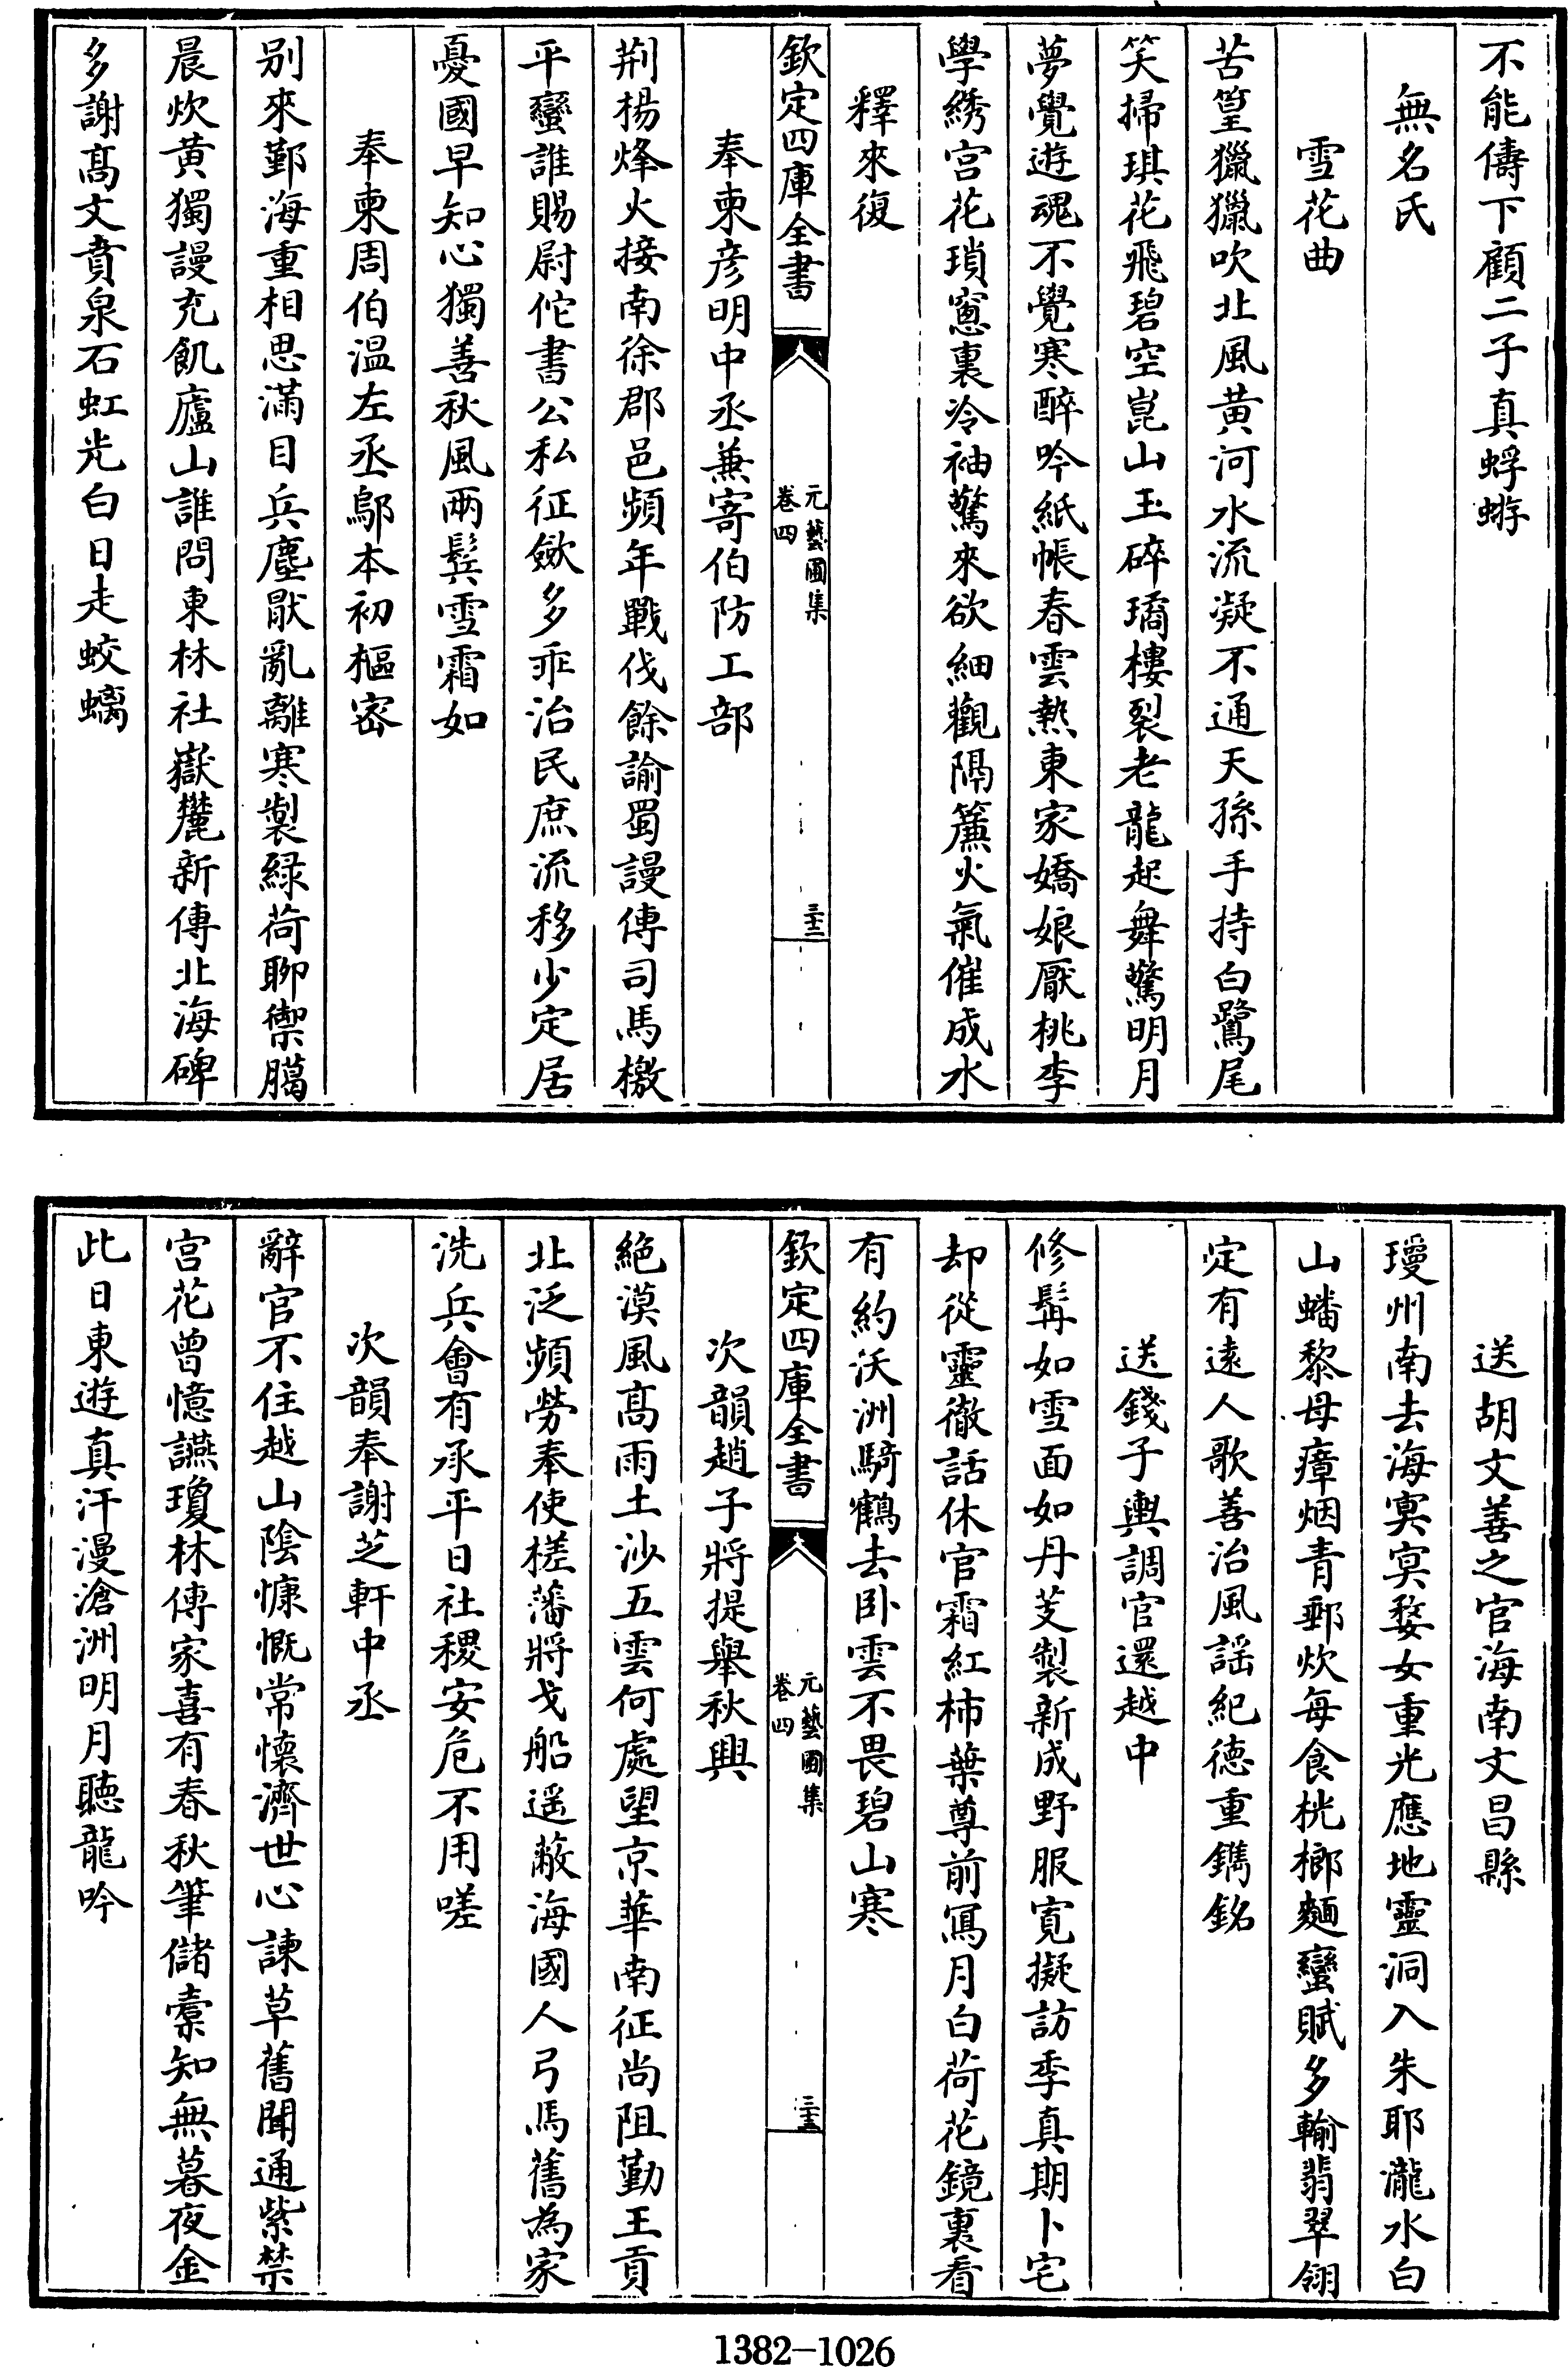 不能儔下顧二子真蜉蝣
無名氏
雪花曲
苦篁獵獵吹北風黄河水流凝不通天孫手持白鷺尾
笑掃琪花飛碧空崑山玉碎璚樓裂老龍起舞驚明月
夢覺遊魂不覺寒醉吟紙帳春雲熱東家嬌娘厭桃李
學綉宫花瑣窻裏冷袖驚來欲細觀隔簾火氣催成水
釋來復
欽定四庫全書
元藝圃集
卷四
三十二
奉柬彦明中丞兼寄伯防工部
荆楊烽火接南徐郡邑頻年戰伐餘諭蜀謾傳司馬檄
平蠻誰賜尉佗書公私征歛多乖治民庶流移少定居
憂國早知心獨善秋風兩鬂雪霜如
奉柬周伯温左丞鄔本初樞密
别來鄞海重相思滿目兵塵厭亂離寒製緑荷聊禦臈
晨炊黄獨謾充飢廬山誰問東林社嶽麓新傳北海碑
多謝髙文賁泉石虹光白日走蛟螭
送胡文善之官海南文昌縣
瓊州南去海㝠㝠婺女重光應地靈洞入朱耶瀧水白
山蟠黎母瘴烟青郵炊每食桄榔麵蠻賦多輸翡翠翎
定有遠人歌善治風謡紀德重鐫銘
送錢子輿調官還越中
修髯如雪面如丹芰製新成野服寛擬訪季真期卜宅
却從靈徹話休官霜紅柿葉尊前寫月白荷花鏡裏看
有約沃洲騎鶴去卧雲不畏碧山寒
欽定四庫全書
元藝圃集
卷四
三十三
次韻趙子將提舉秋興
絶漠風髙雨土沙五雲何處望京華南征尚阻勤王貢
北泛頻勞奉使槎藩將戈船遥蔽海國人弓馬舊為家
洗兵會有承平日社稷安危不用嗟
次韻奉謝芝軒中丞
辭官不住越山陰慷慨常懷濟世心諫草舊聞通紫禁
宫花曾憶讌瓊林傳家喜有春秋筆儲槖知無暮夜金
此日東遊真汗漫滄洲明月聽龍吟
1382-1026